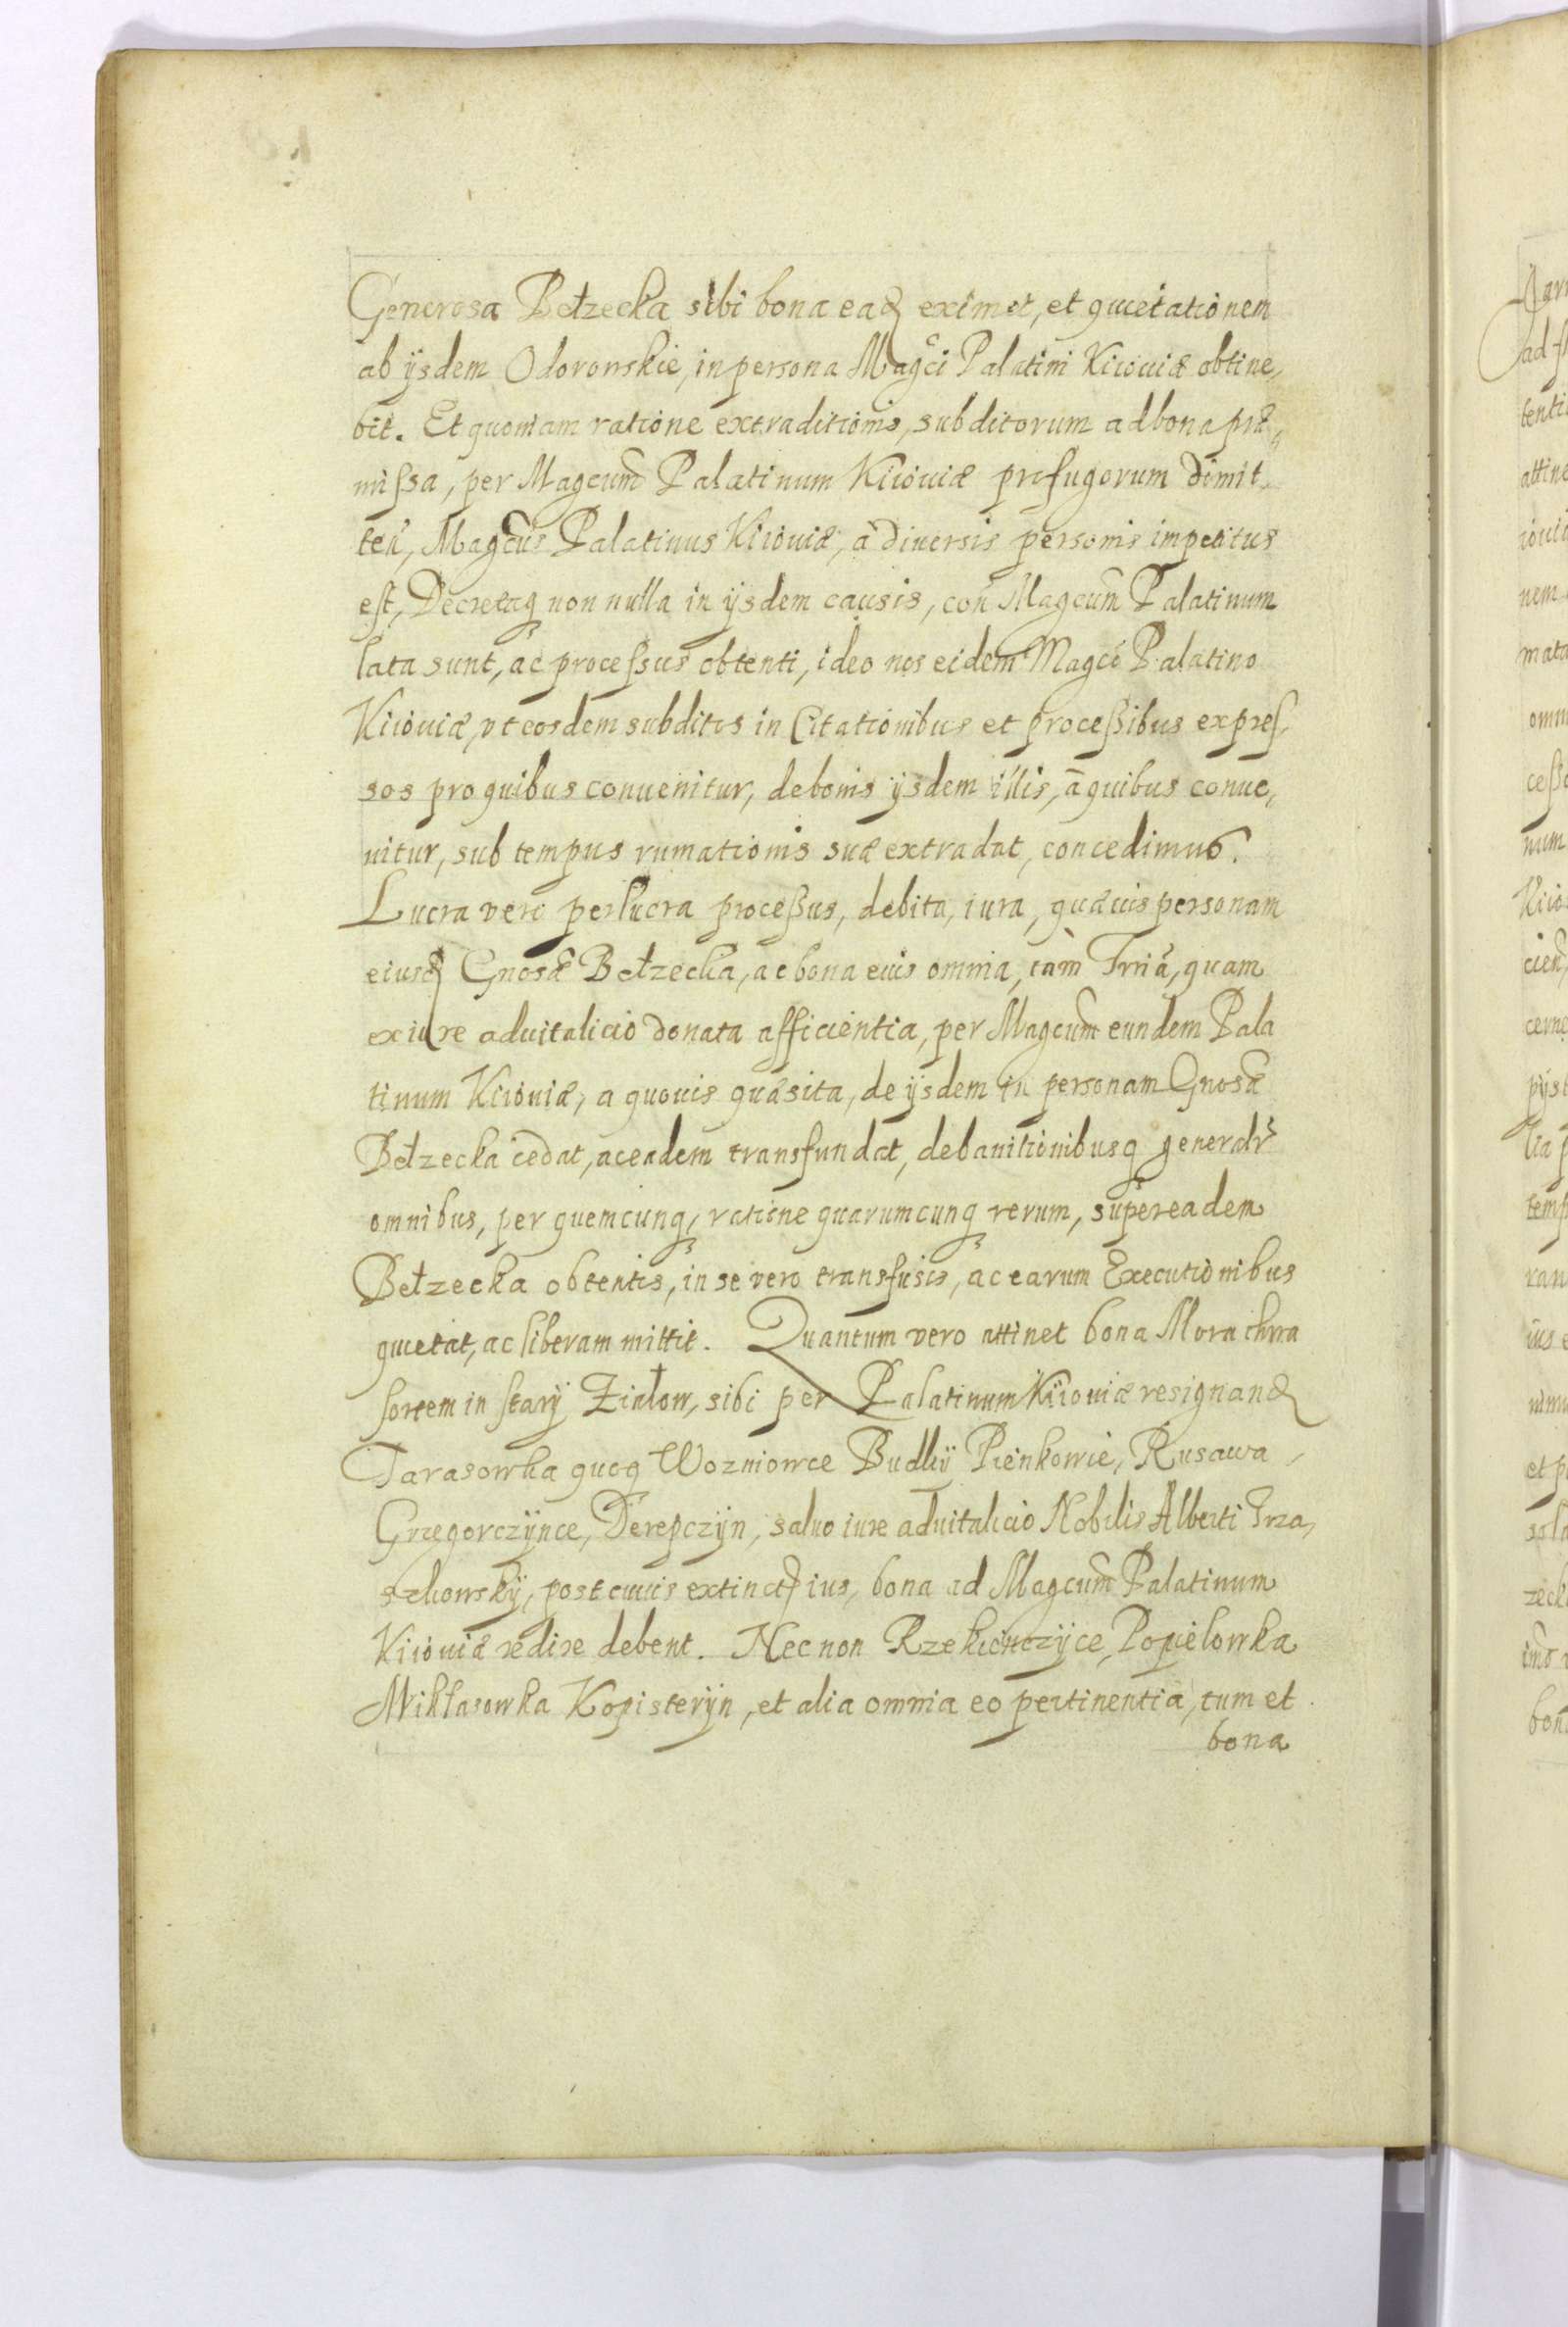 Generosa Bełzecka sibi bona eadem eximet, et quietationem
ab ijsdem Odorowskie, in persona Magci Palatini Kijouiæ obtine,
bit. Et quoniam ratione extraditionis, subditorum ad bona præ,
missa, per Magcum Palatinum Kiiouiæ profugorum dimit,
ten, Magcus Palatinus Kiiouiæ, a diuersis personis impetitus
est, Decretaq non nulla in ijsdem causis, con Magcum Palatinum
lata sunt, ac processus obtenti, ideo nos eidem Magco Palatino
Kiiouiæ, vt eosdem subditos in Citationibus et processibus expres,
sos pro quibus conuenitur, de bonis ijsdem illis, a quibus conue,
nitur, sub tempus rumationis suæ extradat, concedimus.
Lucra vero perlucra processus, debita, iura, quæuis personam
eiusd Gnosæ Bełzecka, ac bona eius omnia, tam Trria, quam
ex iure aduitalicio donata afficientia, per Magcum eundem Pala
tinum Kiiouiæ, a quouis quæsita, de ijsdem in personam Gnosæ
Bełzecka cedat, ac eadem transfundat, de banitionibusq generalr
omnibus, per quemcunq, ratione quarumcunq rerum, super eadem
Bełzecka obtentis, in se vero transfusis, ac earum Executionibus
quietat, ac liberam mittit. Quantum vero attinet bona Morachwa
sortem in stary Ziałow, sibi per Palatinum Kiiouiæ resignand
Tarasowka quoq Wozniowce Budkij Pienkowie, Rusawa,
Grzegorczijnce, Derepczijn, saluo iure aduitalicio Nobilis Alberti Trza,
szkowskij, post cuius extinct ius, bona ad Magcum Palatinum
Kiiouiæ redire debent. Nec non Rzekienczijce, Popielowka
Mikłasowka Kopisterijn, et alia omnia eo pertinentia, tum et
bona